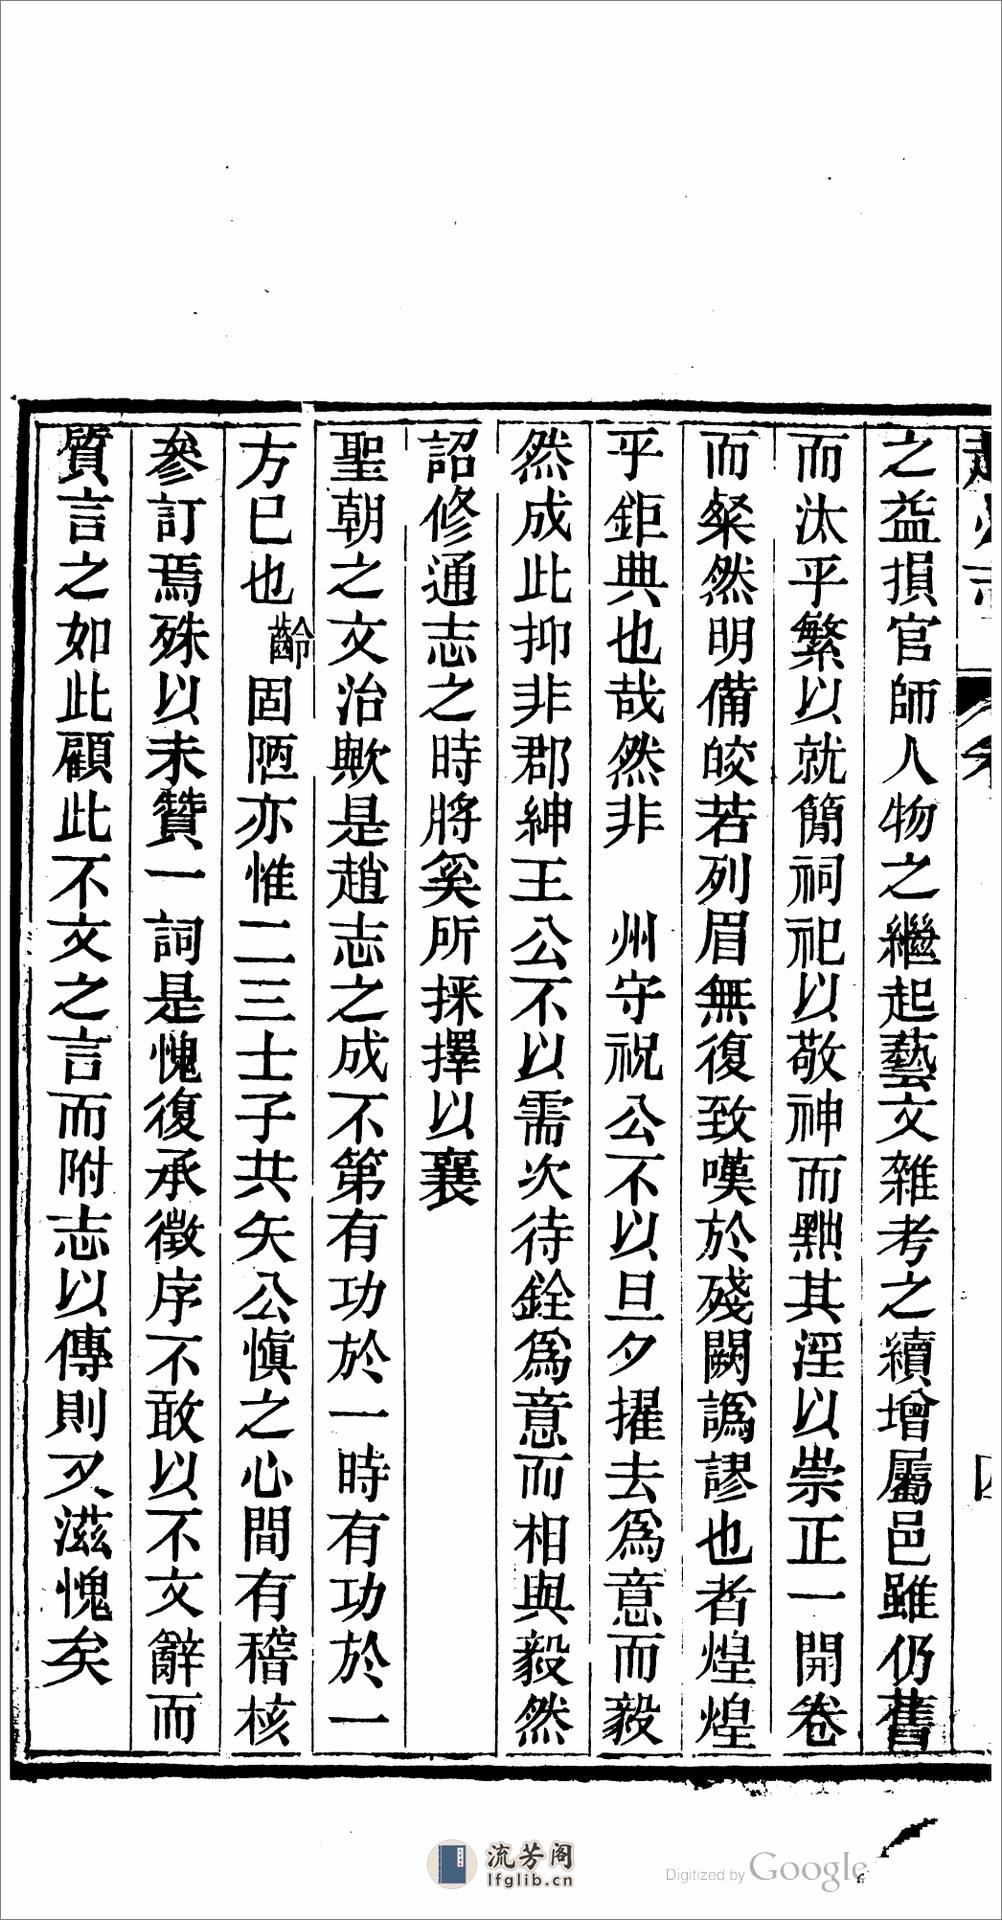 趙州志
之益損官師人物之繼起藝文雜考之續增屬邑雖仍舊
而汰乎繁以就簡祠祀以敬神而黜其淫以崇正一開卷
而粲然明備皎若列眉無復致嘆於殘闕譌謬也者煌煌
乎鉅典也哉然非 州守祝公不以旦夕擢去爲意而毅
然成此抑非郡紳王公不以需次待銓爲意而相與毅然
詔修通志之時將奚所採擇以襄
聖朝之文治歟是趙志之成不第有功於一時有功於一
方已也齡固陋亦惟二三士子共矢公愼之心間有稽核
參訂焉殊以未贊一詞是愧復承徵序不敢以不文辭而
質言之如此顧此不文之言而附志以傳則又滋愧矣
流芳阁
lfglib.cn
Digitized by Google